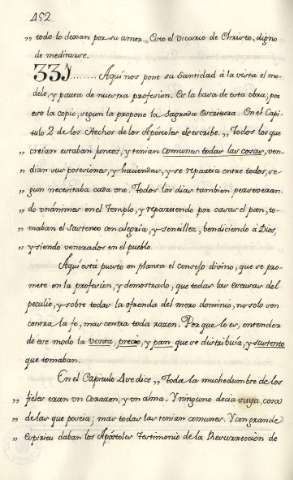 452
„ todo lo dexan por su amor. Esto el Vicario de Christo, digno
de meditarse.
33§........ Aqui nos pone su Santidad á la vista el mo-
delo, y pauta de nuestra profesion. Es la basa de esta obra; por
eso la copio, segun la propone la Sagrada Escritura. En el Capi-
tulo 2 de los Hechos de los Apóstoles, describe. „Todos los que
„ creian estaban juntos, y tenian comunes todas las cosas, ven-
„ dian sus posesiones, y haciendas, y se repartia entre todos, se-
„ gun necesitaba cada uno. Todos los dias tambien perseveran-
„ do unánimes en el Templo, y repartiendo por casas el pan, to-
„ maban el sustento con alegria, y sencillez, bendiciendo á Dios,
„ y siendo venerados en el pueblo.
Aqui está puesto en planta el consejo divino, que se pro-
mete en la profesion, y demostrado, que todas las escusas del
peculio, y sobre todas la ofrenda del mero dominio, no solo son
contra la fe, mas contra toda razon. Por que lo es, entender
de ese modo la venta, precio, y pan que se distribuía, y sustento
que tomaban.
En el Capitulo 4 se dice „ Toda la muchedumbre de los
„ fieles eran un Corazon, y un alma. Y ninguno decia suya, cosa
„ de las que poseia; mas todas las tenian comunes. Y con grande
„ Espiritu daban los Apóstoles testimonio de la Resurreccion de